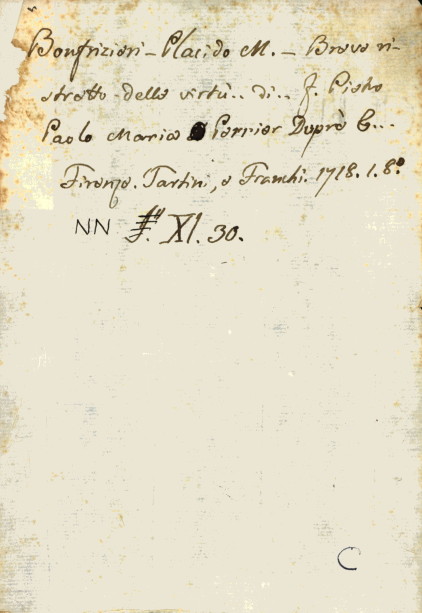 Bonfrizieri - Placido M. - Breve ri-
stretto delle virtù.. di.. f. Pietro
Paolo Maria Perrier Duprè &...
Firenze. Tartini, e Franchi. 1718. 1. 8º
NN F. XI. 30.
C